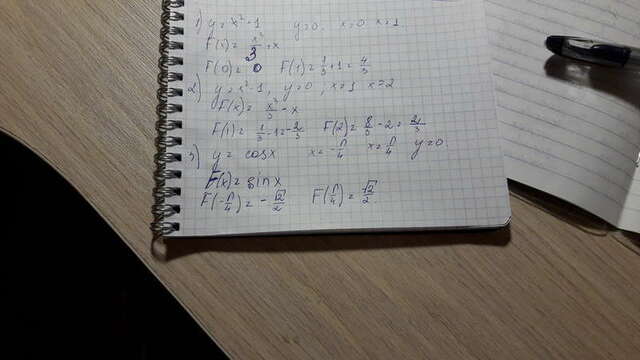 1) y = x²+1 y=0 x=0 x=1
F(x) = x³/3 + x
F(0) = 0 F(1) = 1/3 + 1 = 4/3
2) y = x²-1, y=0, x=1 x=2
F(x) = x³/3 - x
F(1) = 1/3 - 1 = -2/3 F(2) = 8/3 - 2 = 2/3
3) y = cos x x = -π/4 x = π/4 y=0
F(x) = sin x
F(-π/4) = -√2/2 F(π/4) = √2/2